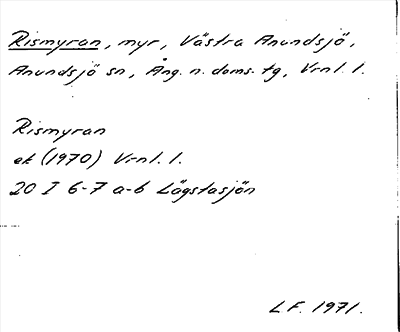 Rismyran, myr, Västra Anundsjö,
Anundsjö sn, Ång. n. doms. tg, Vrnl. l.
Rismyran
ek (1970) Vrnl. l.
20 I 6-7 a-b Lägstasjön
LF. 1971.